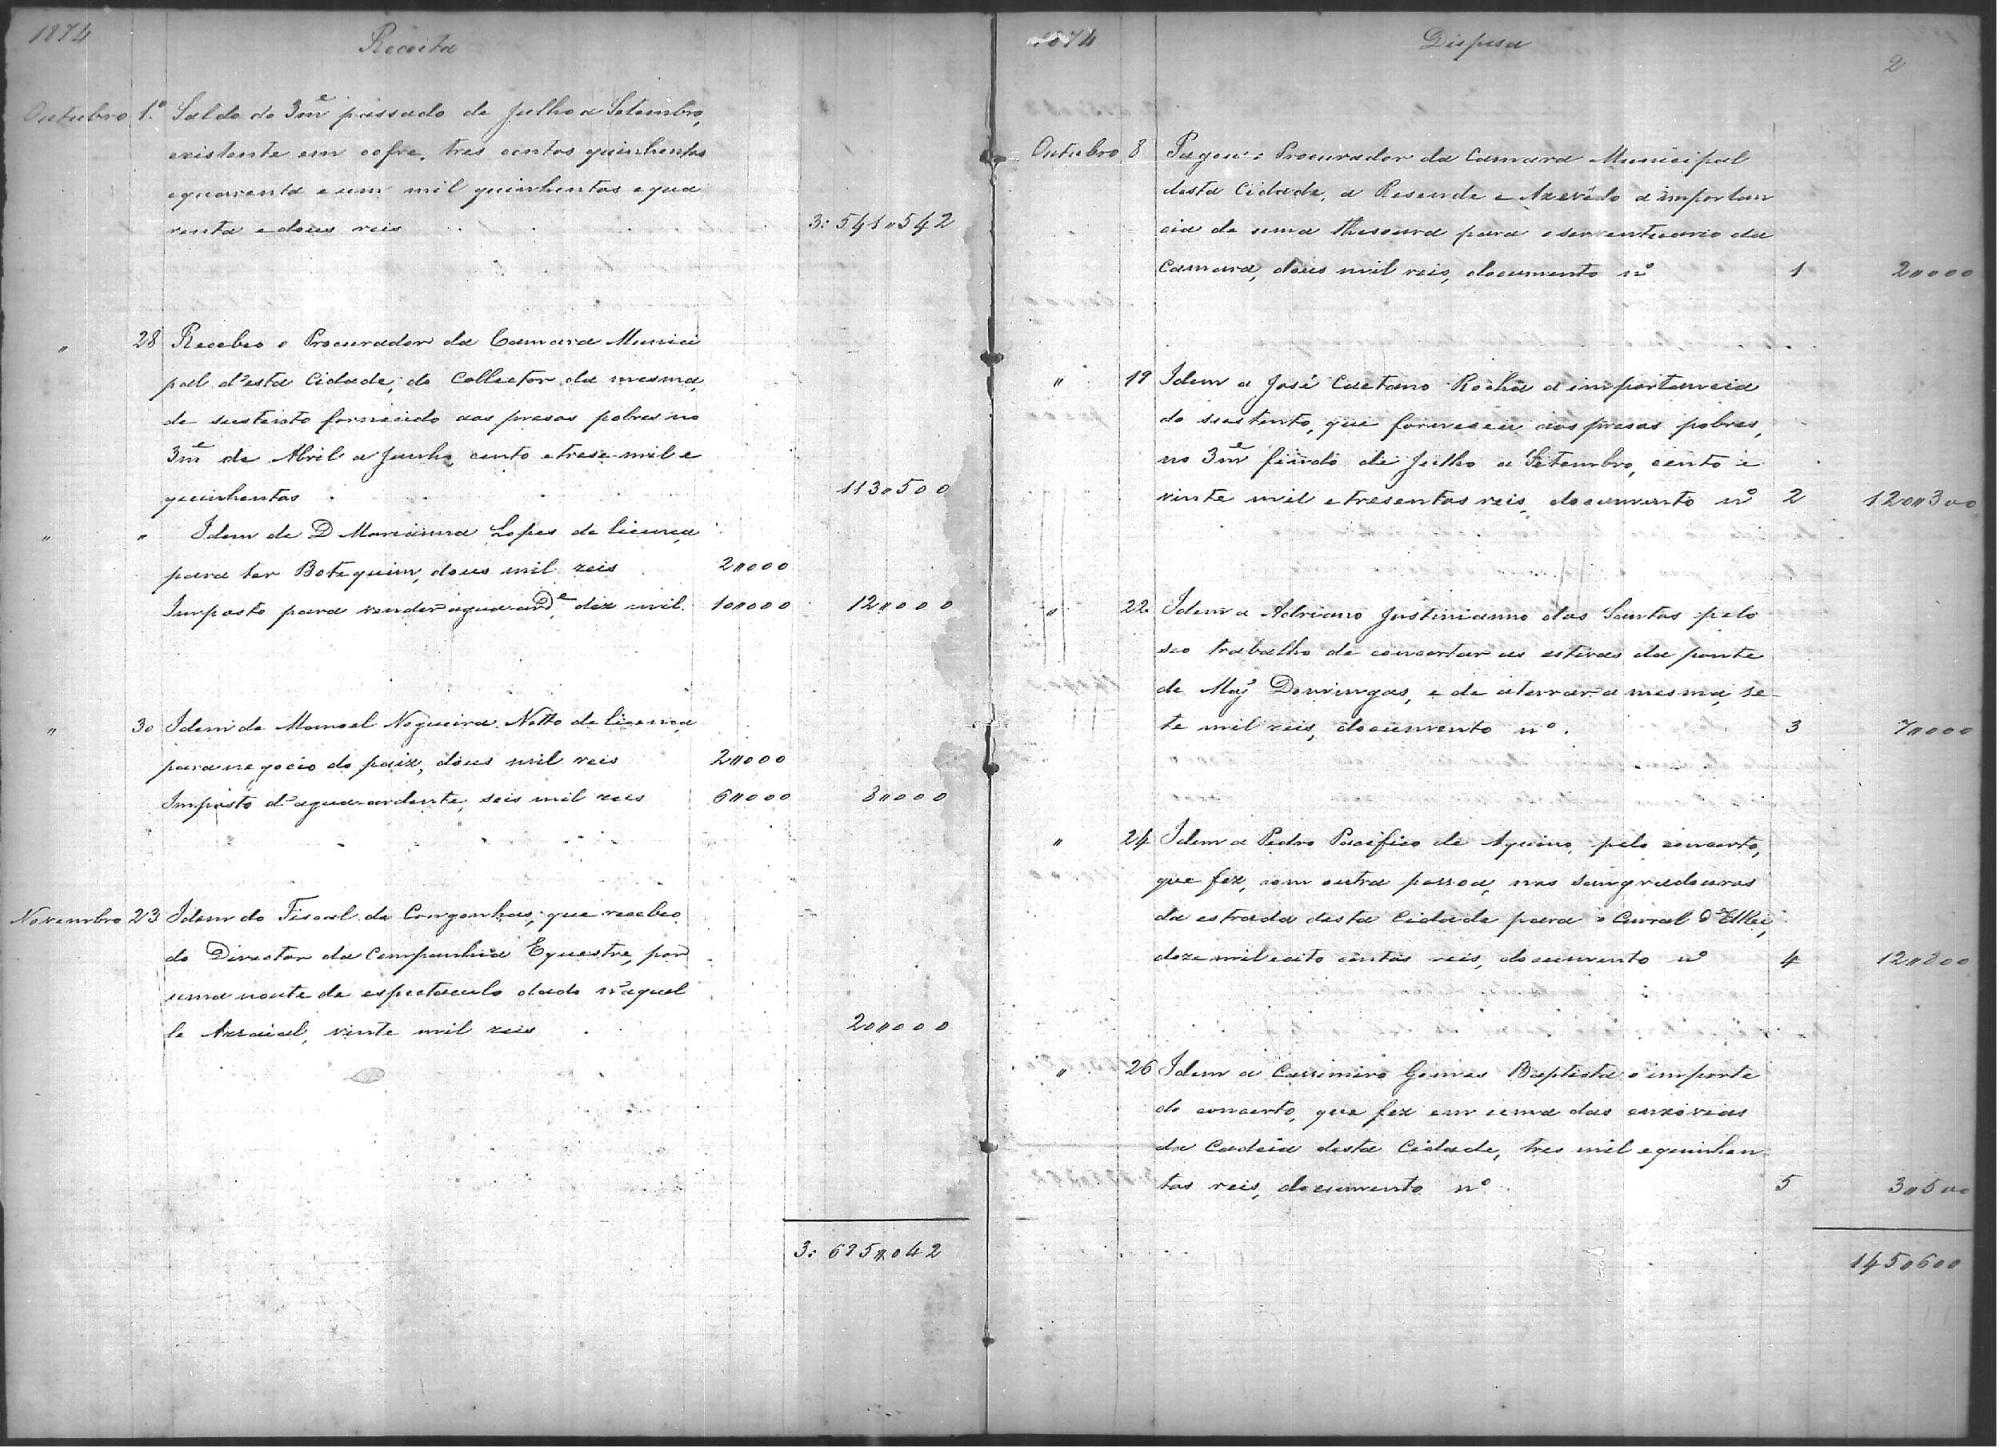 1874
Receita
Outubro 1.º Saldo do 3mᵉ passado de Julho a Setembro,
existente em cofre, tres contos quinhentos
e quarenta e um mil quinhentos e qua
renta e dous reis 3:541"542
" 28 Recebeo o Procurador da Camara Munici
pal d'esta Cidade, do Collector da mesma,
de sustento fornecido aos presos pobres no
3mᵉ de Abril a Junho, cento e trese mil e
quinhentos 113"500
" " Idem de D Marianna Lopes de licença
para ter Botequim, dous mil reis 2"000
Imposto para vender agua-ardᵉ, dez mil. 10"000 12"000
" 30 Idem de Manoel Nogueira Netto de licença
para negocio do paiz, dous mil reis 2"000
Imposto d'agua-ardente, seis mil reis 6"000 8"000
Novembro 23 Idem do Fiscal de Congonhas, que recebeo
do Director da Companhia Equestre, por
uma noute de espectaculo dado n'aquel
le Arraial, vinte mil reis 20"000
3:695"042
1874
Dispesa
2
Outubro 8 Pagou o Procurador da Camara Municipal
desta Cidade, a Resende e Azevêdo a importan
cia de uma thesoura para o serventuario da
Camara, dous mil reis, documento nº 1 2"000
" 19 Idem a José Caetano Rocha a importancia
do sustento, que forneceu aos presos pobres,
no 3mᵉ findo de Julho a Setembro, cento e
vinte mil e tresentos reis, documento nº 2 120"300
" 22 Idem a Adriano Justinianno dos Santos pelo
seo trabalho de concertar as estivas da ponte
de Maỹ Domingas, e de aterrar a mesma, se-
te mil reis, documento nº. 3 7"000
" 24 Idem a Pedro Pacifico de Aquino, pelo concerto,
que fez, com outra pessoa, nos sangradouros
da estrada desta Cidade para o Curral d'ElRei,
doze mil e oito centos reis, documento nº 4 12"800
" 26 Idem a Casimiro Gomes Baptista o importe
do concerto, que fez em uma das enxovias
da Cadeia desta Cidade, tres mil e quinhen
tos reis, documento nº 5 3"500
145"600